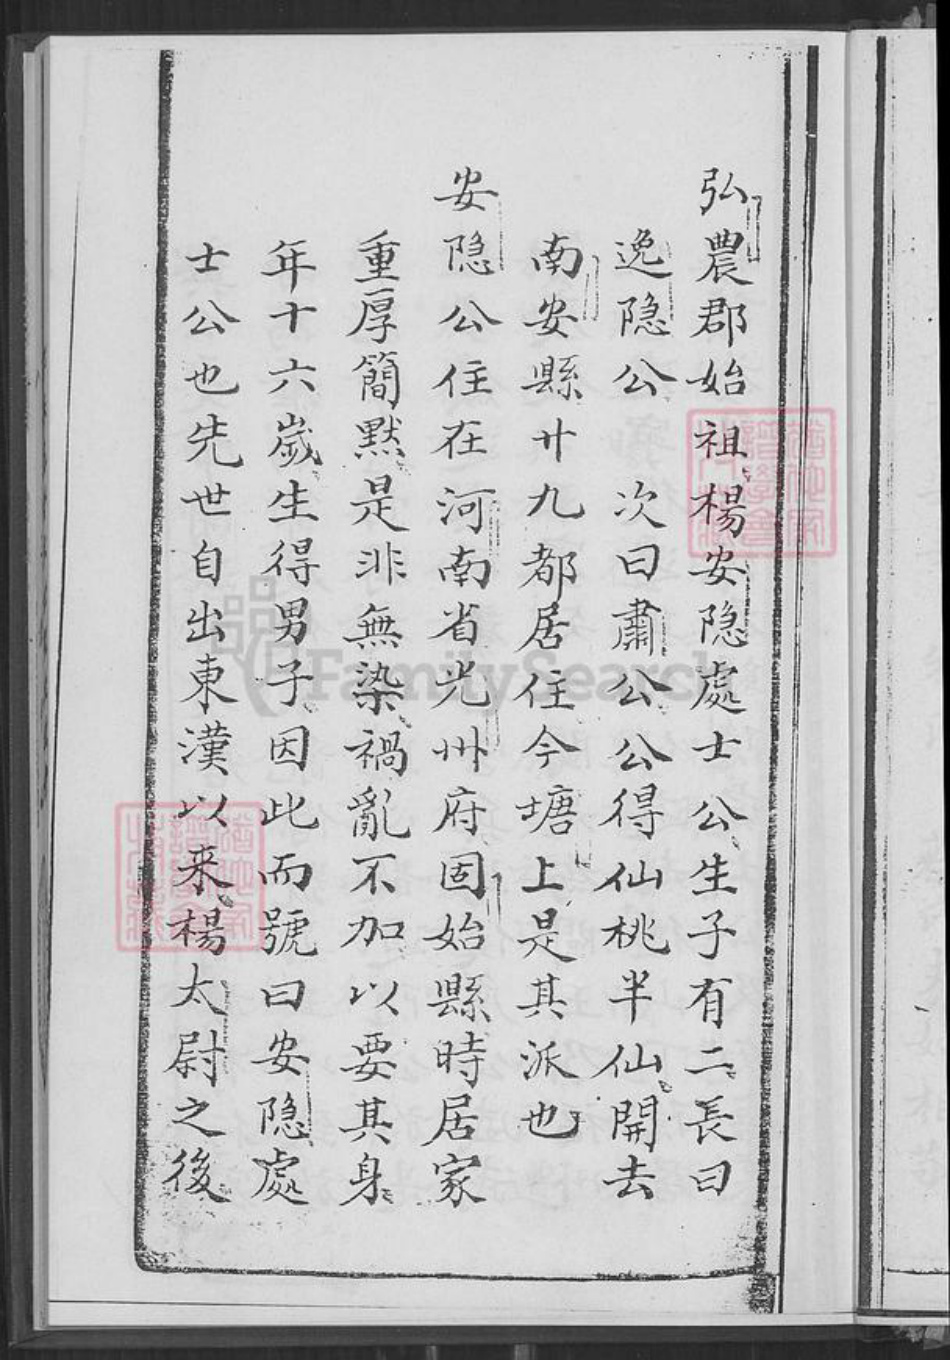 弘農郡始祖楊安隐處士公生子有二長曰
逸隐公　次曰肅公公得仙桃半仙開去
南安縣廿九都居住今塘上是其派也
安隐公住在河南省光州府固始縣時居家
重厚簡默是非無染禍亂不加以要其身
年十六歲生得男子因此而號曰安隐處
士公也先世自出東漢以来楊太尉之後
FamilySearch